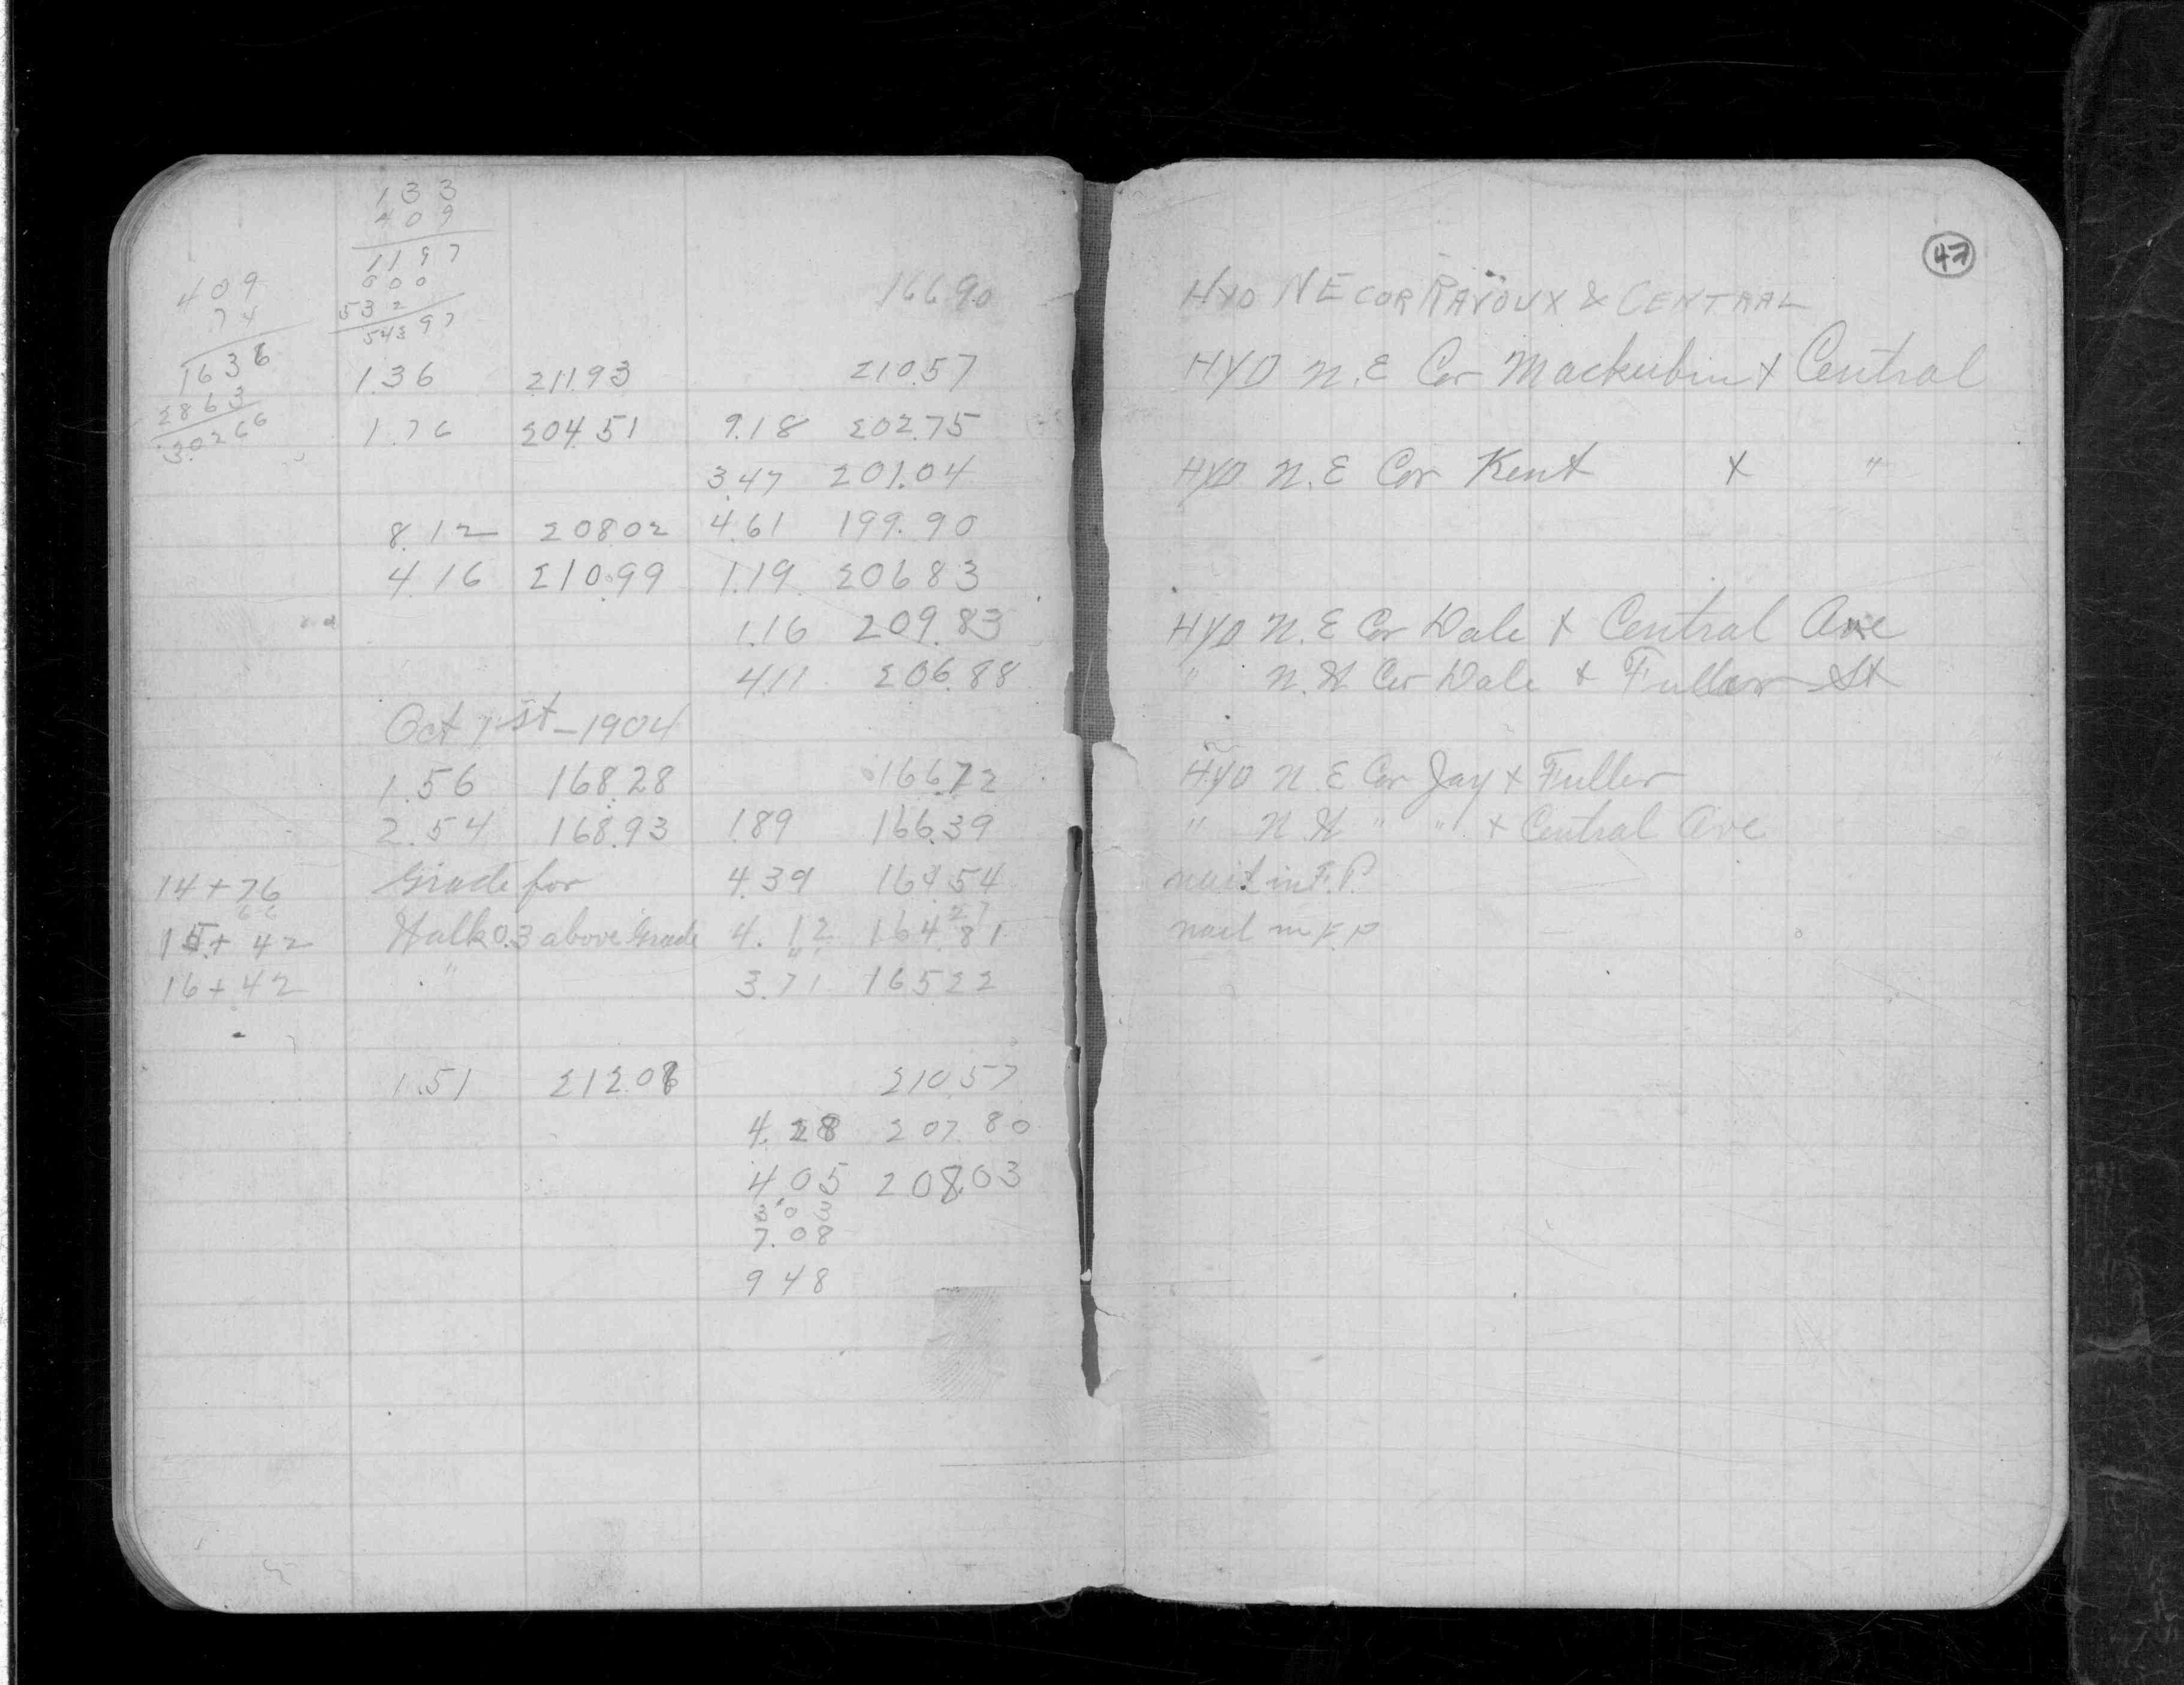 47
133
409
1197
000
532
54397
409
74
1636
2863
30266
166.90 HYD NE COR RAVOUX & CENTRAL
1.36 211.93 210.57 HYD N.E Cor Mackubin + Central
1.76 204.51 9.18 202.75
3.47 201.04 HYD N.E Cor Kent + "
8.12 208.02 4.61 199.90
4.16 210.99 1.19 206.83
1.16 209.83 HYD N.E Cor Dale + Central Ave
4.11 206.88 " N.W Cor Dale + Fuller St
Oct 1st - 1904
1.56 168.28 166.72 HYD N.E Cor Jay + Fuller
2.54 168.93 1.89 166.39 " N.W " " + Central Ave
14+76 Grade for 4.39 164.54 nail in F.P.
66 27
15+42 Walk 0.3 above Grade 4.12 164.81 nail in F.P
16+42 " 3.71 165.22
1.51 212.08 210.57
4.28 207.80
4.05 208.03
3.03
7.08
9 48